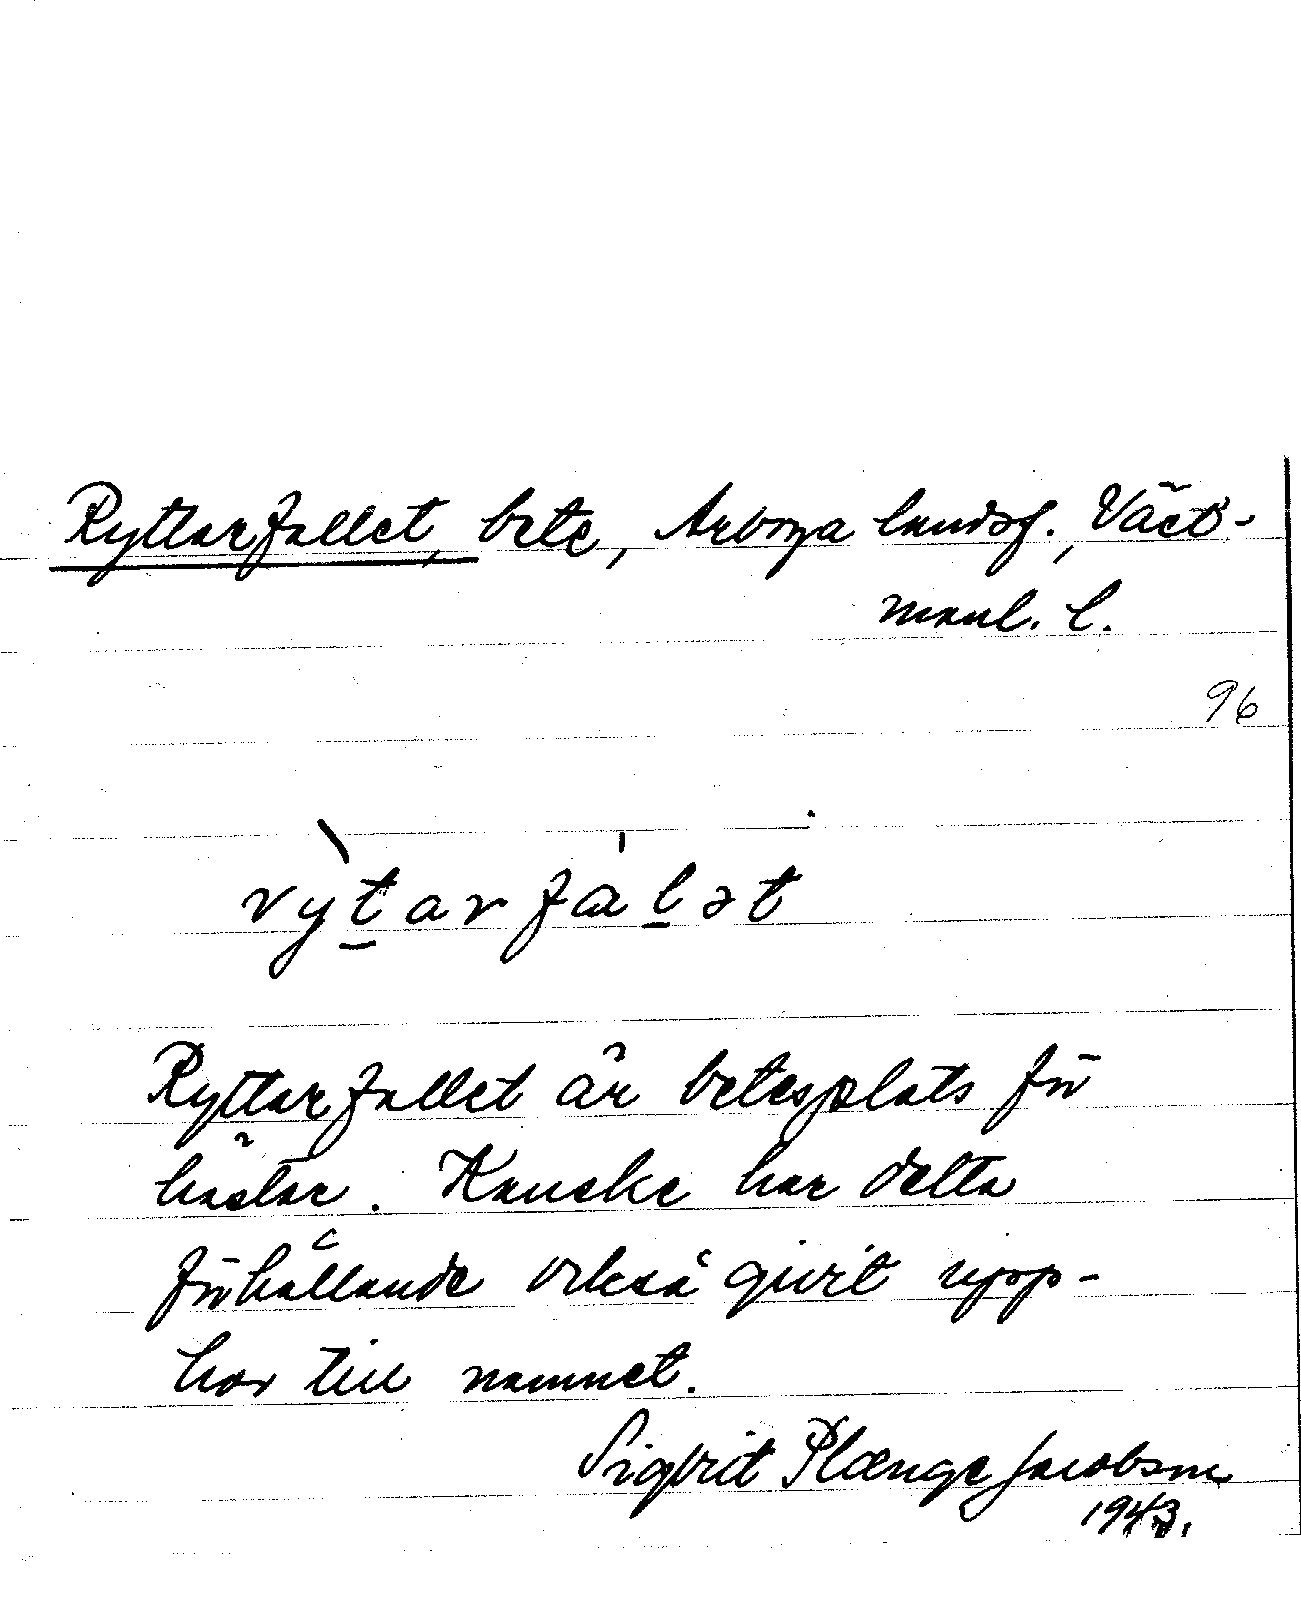 Ryttarfallet, bete, Arboga landsf., Väst-
manl. l.
96
rỳt̲arfàl̲ət
Ryttarfallet är betesplats för
hästar. Kanske har detta
förhållande också givit upp-
hov till namnet.
Sigbrit Plænge Jacobson
1943.